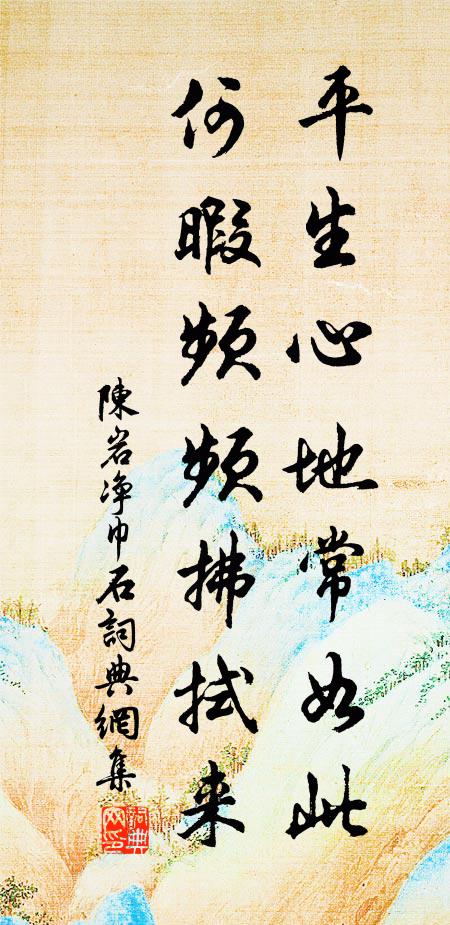 平生心地常如此
何暇頻頻拂拭来
陳岩净巾石詞典網集
詞典網印